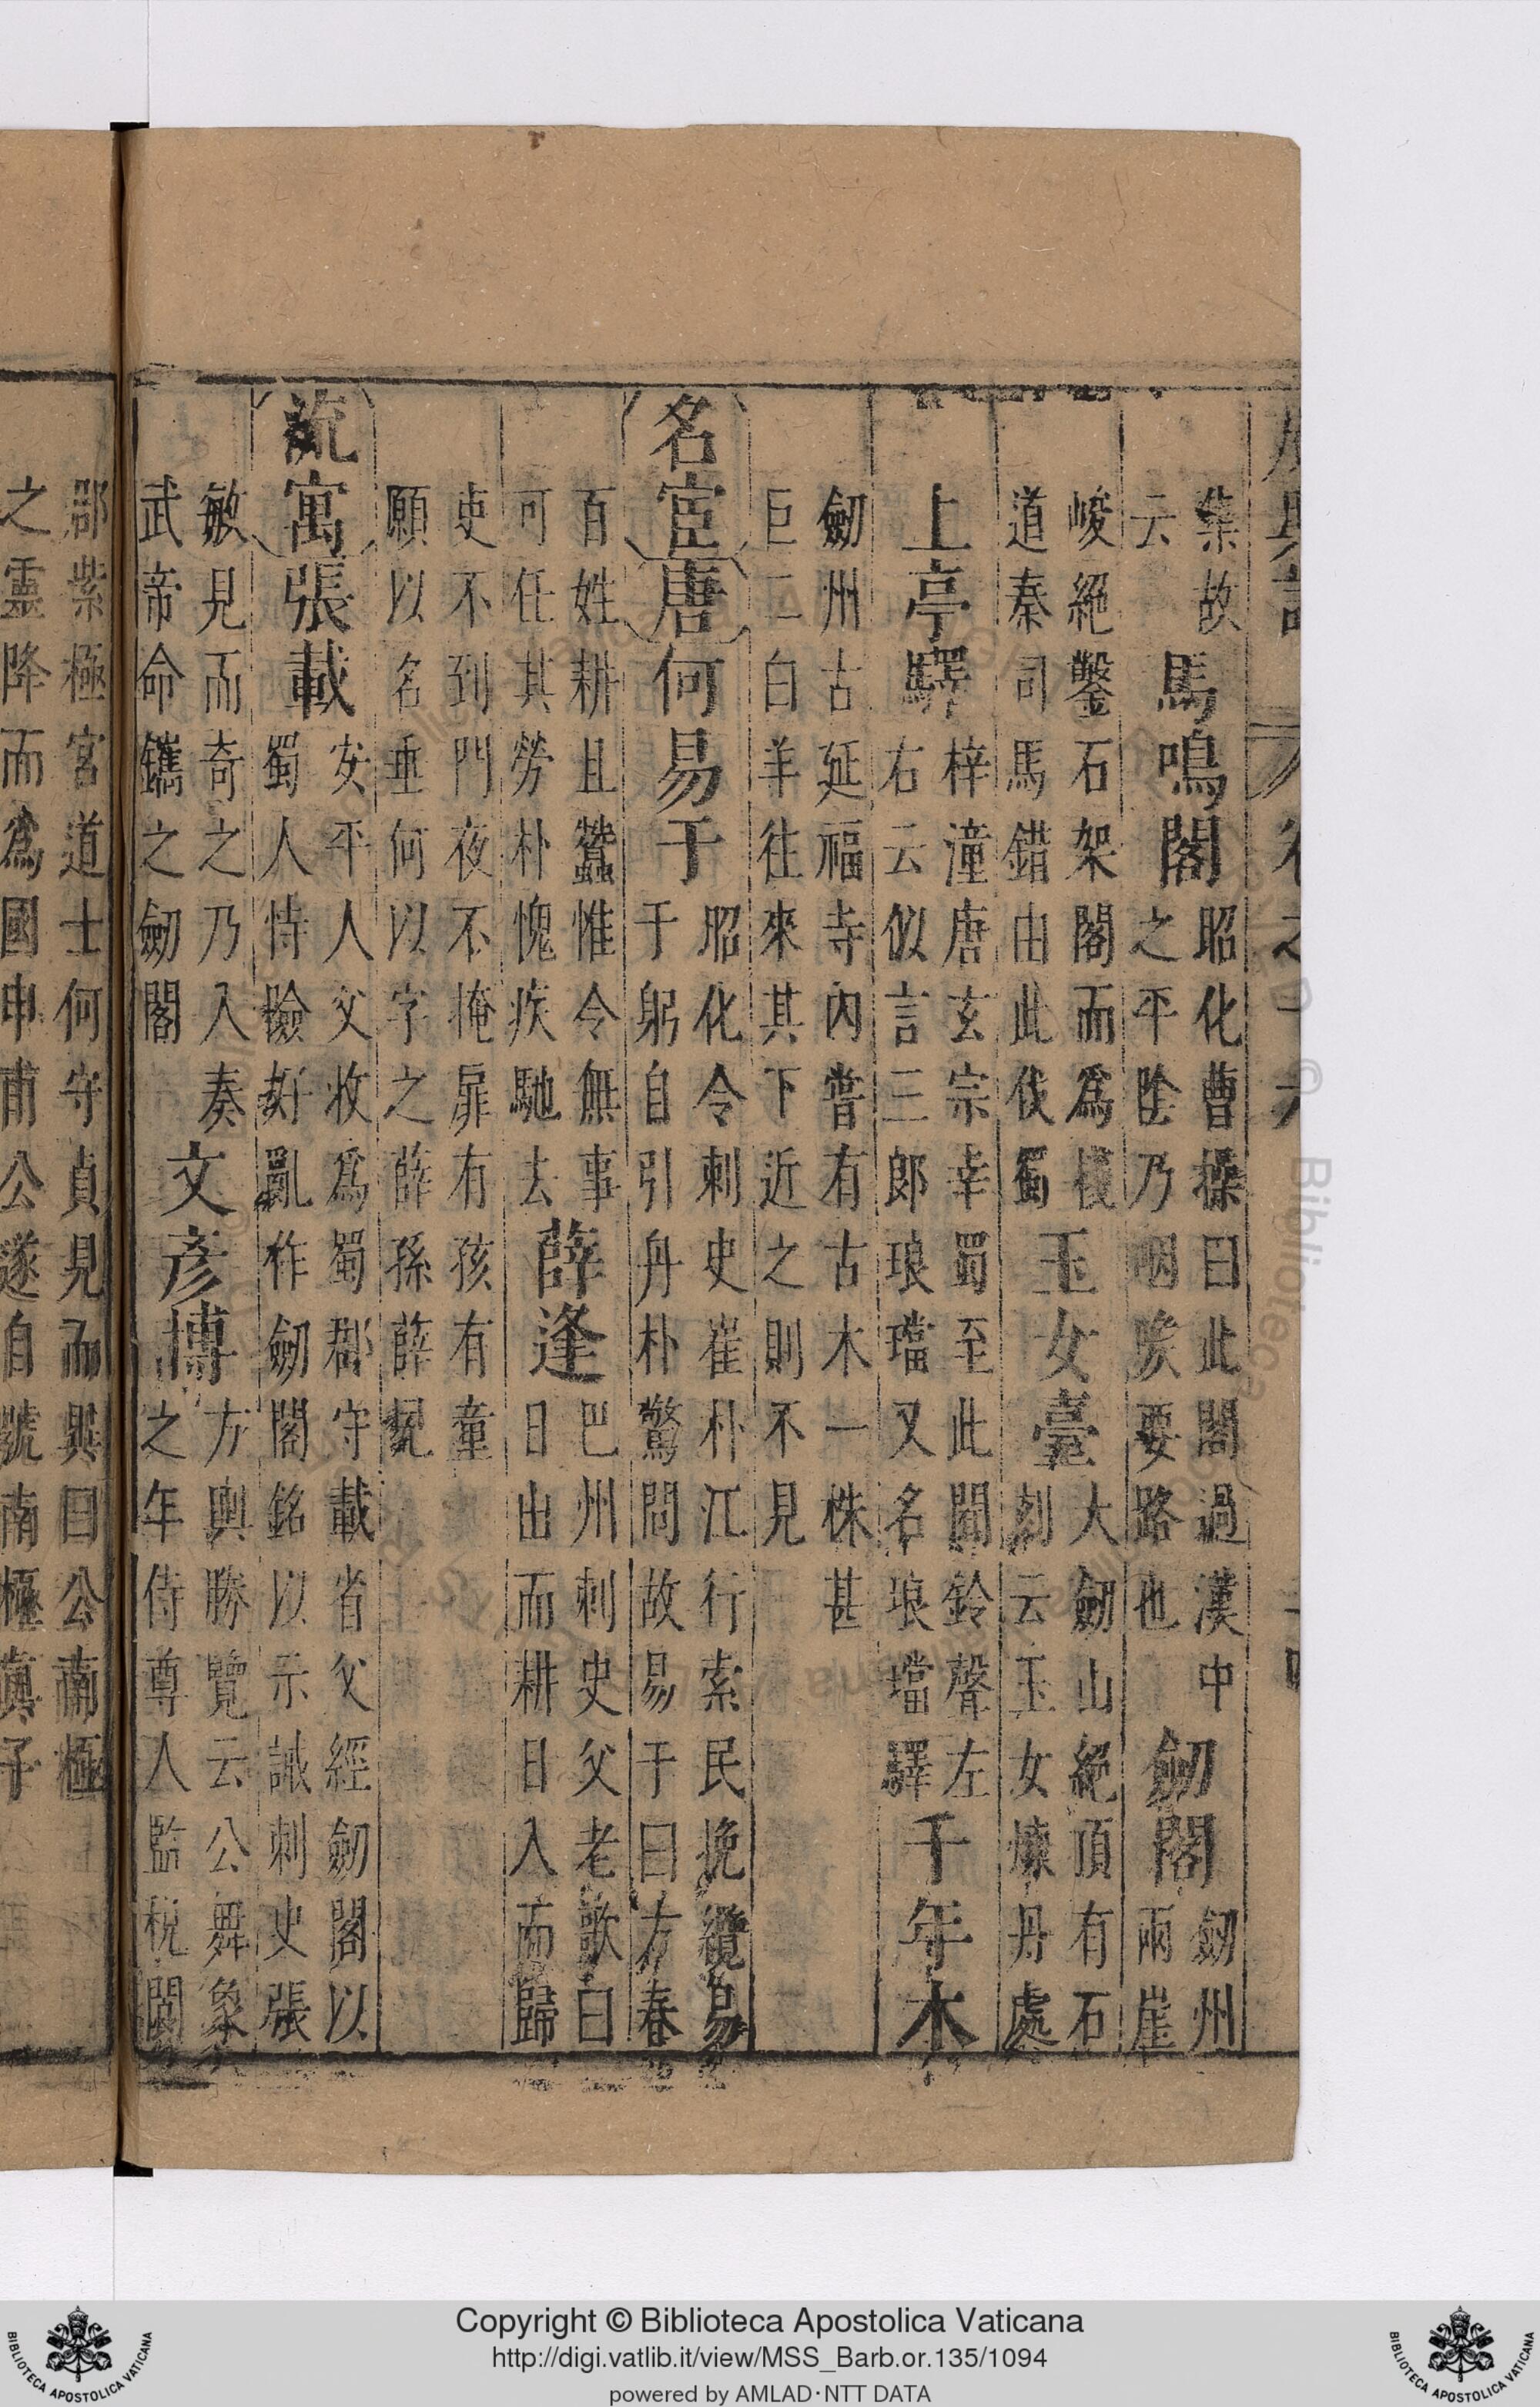 集故
云
馬鳴閣
昭化曹操曰此閣過漢中
之平陰乃咽喉要路也
劒閣
劒州
兩崖
峻絕鑿石架閣而爲棧
道秦司馬錯由此伐蜀
玉女臺
大劒山絕頂有石
刻云玉女煉丹處
上亭驛
梓潼唐玄宗幸蜀至此聞鈴聲左
右云似言三郎琅璫又名琅璫驛
千年木
劒州古延福寺內嘗有古木一株甚
巨二白羊往來其下近之則不見
名宦
唐
何易于
昭化令刺史崔朴江行索民挽纜易
于躬自引舟朴驚問故易于曰方春
百姓耕且蠶惟令無事
可任其勞朴愧疾馳去
薛逢
巴州刺史父老歌曰
日出而耕日入而歸
吏不到門夜不掩扉有孩有童
願以名垂何以字之薛孫薛兒
流寓
張載
安平人父收爲蜀郡守載省父經劒閣以
蜀人恃險好亂作劒閣銘以示誡刺史張
敏見而奇之乃入奏
武帝命鐫之劒閣
文彥博
方輿勝覽云公舞象
之年侍尊人監稅閬
郡紫極宮道士何守貞見而異曰公南極
之靈降而爲國申甫公遂自號南極真子